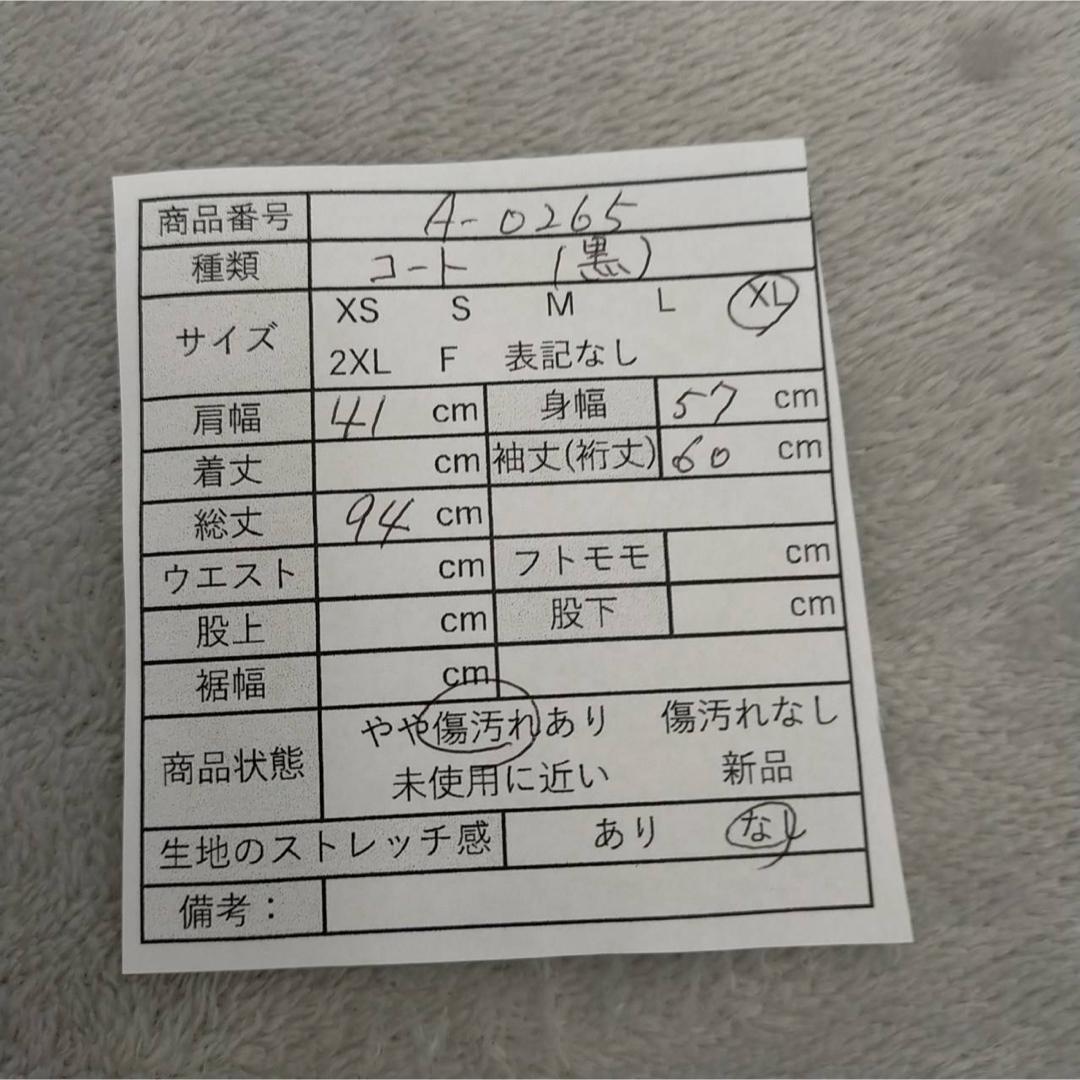 商品番号 A-0265
種類 コート (黒)
サイズ XS S M L XL
2XL F 表記なし
肩幅 41 cm 身幅 57 cm
着丈 cm 袖丈(裄丈) 60 cm
総丈 94 cm
ウエスト cm フトモモ cm
股上 cm 股下 cm
裾幅 cm
商品状態 やや傷汚れあり 傷汚れなし
未使用に近い 新品
生地のストレッチ感 あり なし
備考：